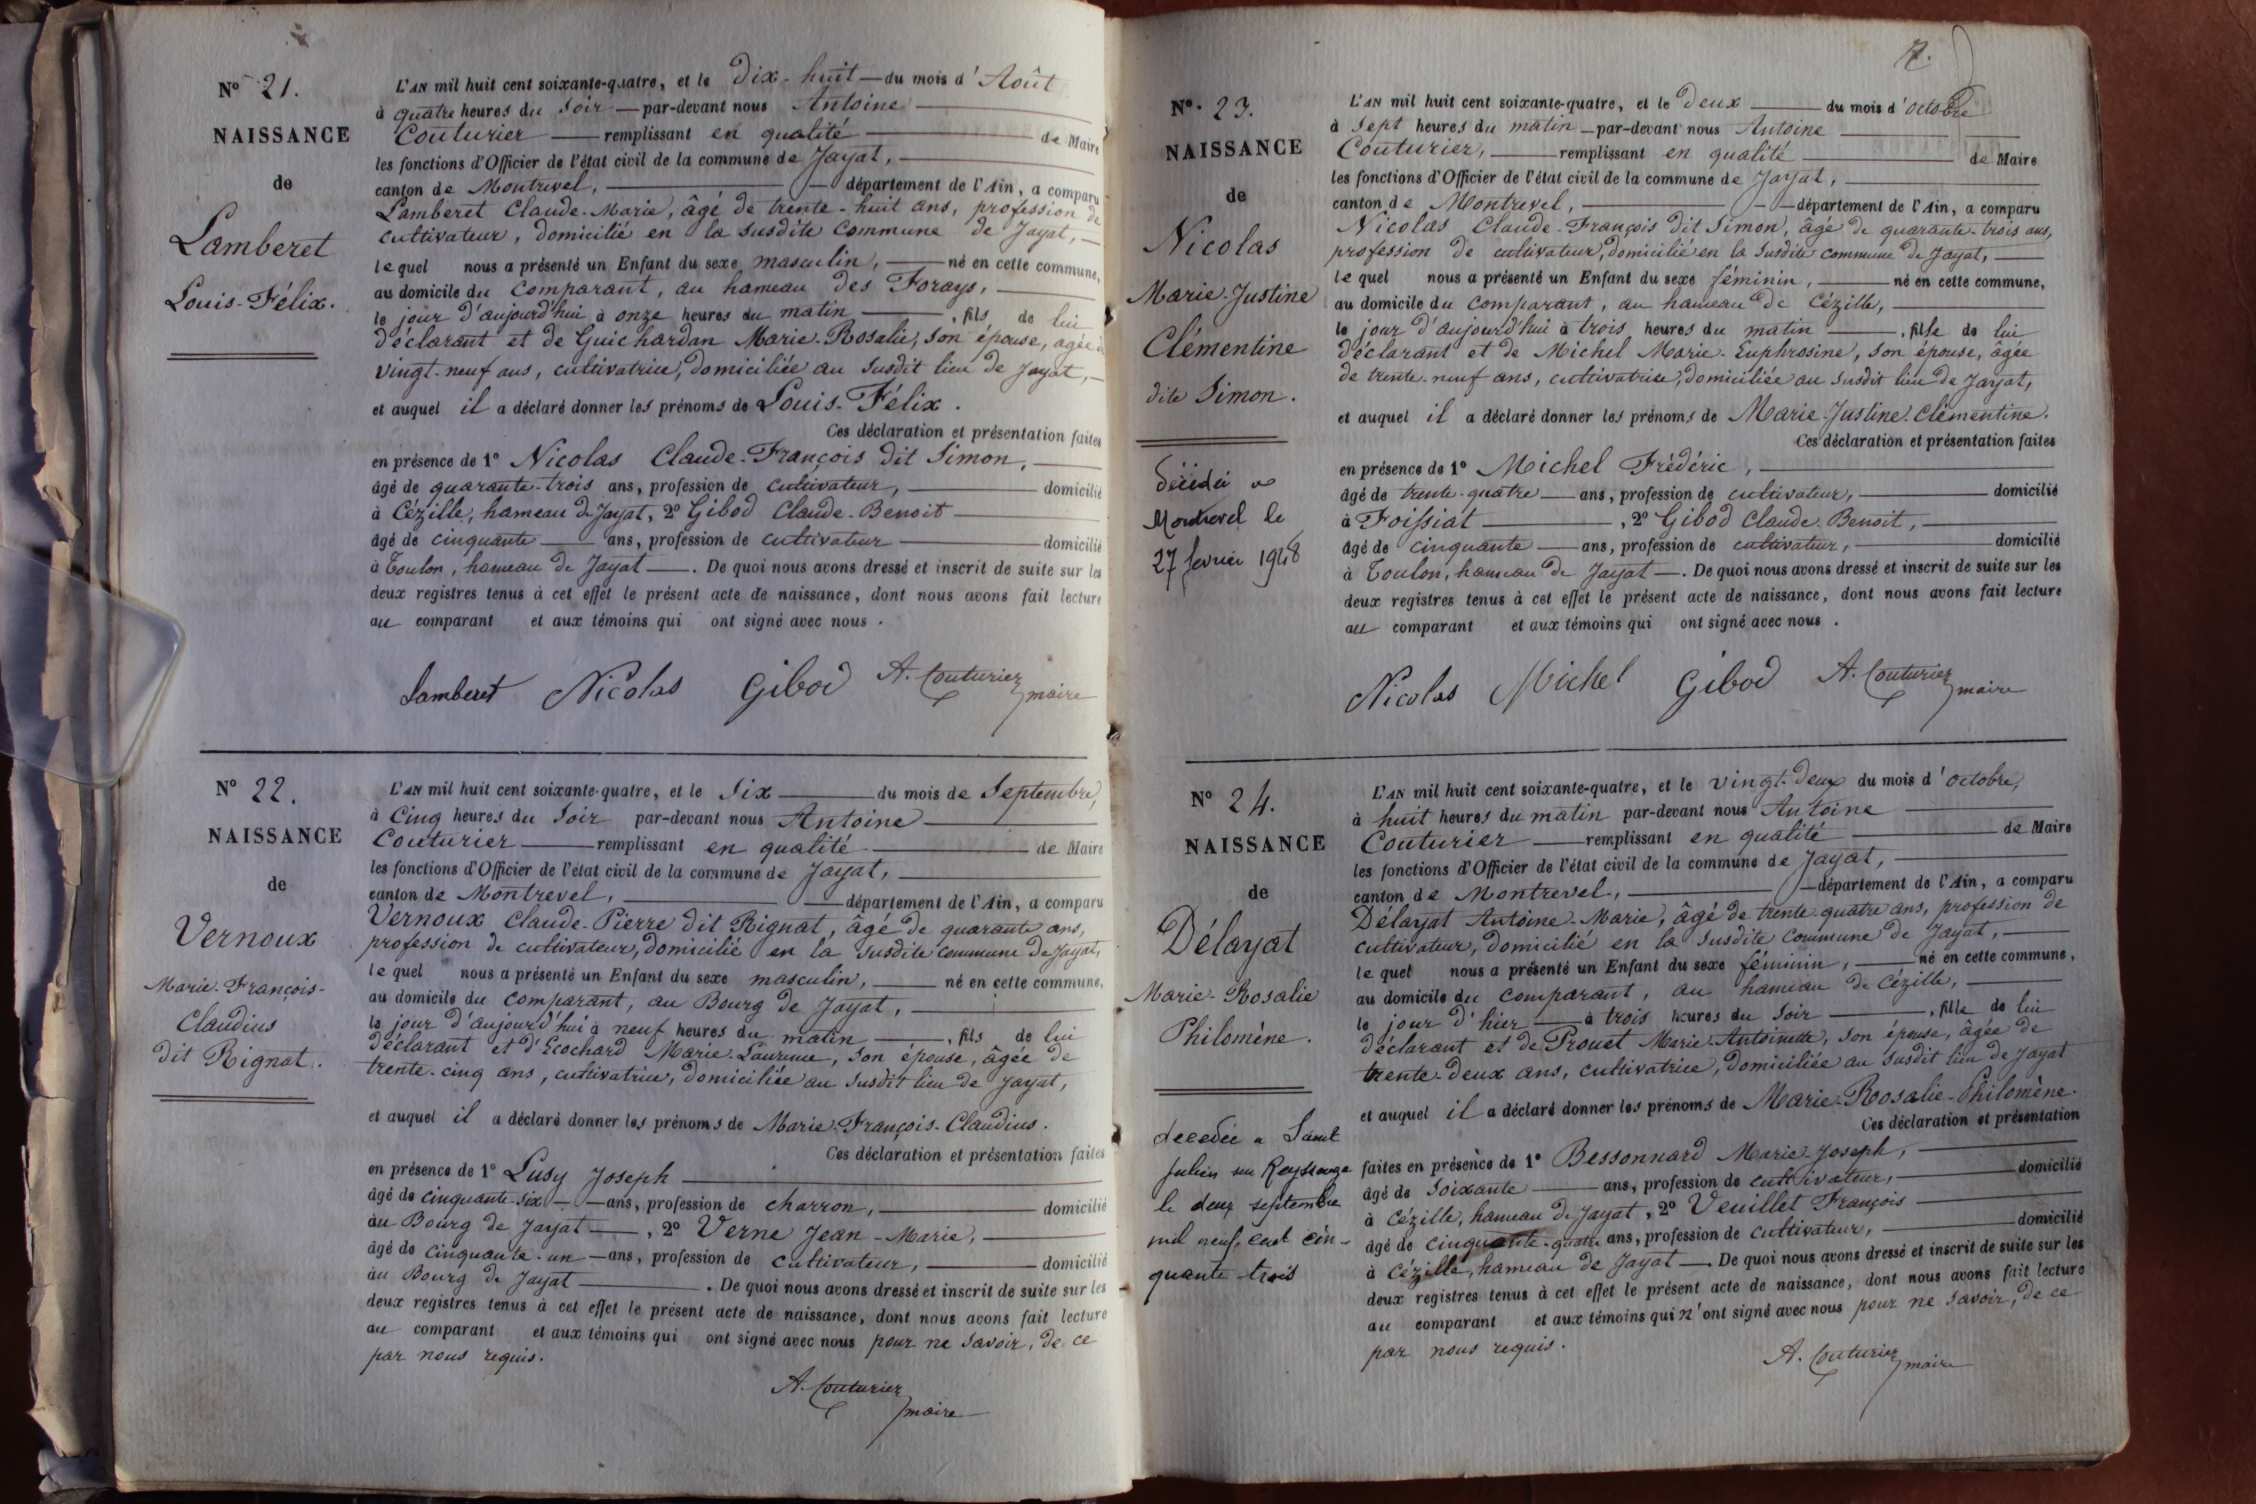 Nº 21.
NAISSANCE
de
Lamberet
Louis-Félix.
L'AN mil huit cent soixante-quatre, et le dix-huit du mois d'Août
à quatre heures du soir par-devant nous Antoine
Couturier remplissant en qualité de Maire
les fonctions d'Officier de l'état civil de la commune de Jayat,
canton de Montrevel, département de l'Ain, a comparu
Lamberet Claude-Marie, âgé de trente-huit ans, profession de
cultivateur, domicilié en la susdite commune de Jayat,
lequel nous a présenté un Enfant du sexe masculin, né en cette commune,
au domicile du comparant, au hameau des Forays,
le jour d'aujourd'hui à onze heures du matin, fils de lui
déclarant et de Guichardan Marie-Rosalie, son épouse, agée de
vingt-neuf ans, cultivatrice, domiciliée au susdit lieu de Jayat,
et auquel il a déclaré donner les prénoms de Louis-Félix.
Ces déclaration et présentation faites
en présence de 1º Nicolas Claude-François dit Simon,
âgé de quarante-trois ans, profession de cultivateur, domicilié
à Cézille, hameau de Jayat, 2º Gibod Claude-Benoit
âgé de cinquante ans, profession de cultivateur domicilié
à Toulon, hameau de Jayat. De quoi nous avons dressé et inscrit de suite sur les
deux registres tenus à cet effet le présent acte de naissance, dont nous avons fait lecture
au comparant et aux témoins qui ont signé avec nous.
Lamberet Nicolas Gibod A. Couturier
maire
Nº 22.
NAISSANCE
de
Vernoux
Marie-François-
Claudius
dit Rignat.
L'AN mil huit cent soixante-quatre, et le six du mois de Septembre,
à cinq heures du soir par-devant nous Antoine
Couturier remplissant en qualité de Maire
les fonctions d'Officier de l'état civil de la commune de Jayat,
canton de Montrevel, département de l'Ain, a comparu
Vernoux Claude-Pierre dit Rignat, âgé de quarante ans,
profession de cultivateur, domicilié en la susdite commune de Jayat,
lequel nous a présenté un Enfant du sexe masculin, né en cette commune,
au domicile du comparant, au Bourg de Jayat,
le jour d'aujourd'hui à neuf heures du matin, fils de lui
déclarant et d'Ecochard Marie-Laurence, son épouse, âgée de
trente-cinq ans, cultivatrice, domiciliée au susdit lieu de Jayat,
et auquel il a déclaré donner les prénoms de Marie-François-Claudius.
Ces déclaration et présentation faites
en présence de 1º Lusy Joseph
âgé de cinquante-six ans, profession de charron, domicilié
au Bourg de Jayat, 2º Verne Jean-Marie,
âgé de cinquante-un ans, profession de cultivateur, domicilié
au Bourg de Jayat. De quoi nous avons dressé et inscrit de suite sur les
deux registres tenus à cet effet le présent acte de naissance, dont nous avons fait lecture
au comparant et aux témoins qui ont signé avec nous pour ne savoir, de ce
par nous requis.
A. Couturier
maire
7.
Nº 23.
NAISSANCE
de
Nicolas
Marie-Justine
Clémentine
dite Simon.
décédée à
Montrevel le
27 fevrier 1948
L'AN mil huit cent soixante-quatre, et le deux du mois d'octobre
à sept heures du matin par-devant nous Antoine
Couturier, remplissant en qualité de Maire
les fonctions d'Officier de l'état civil de la commune de Jayat,
canton de Montrevel, département de l'Ain, a comparu
Nicolas Claude-François dit Simon, âgé de quarante-trois ans,
profession de cultivateur, domicilié en la susdite commune de Jayat,
lequel nous a présenté un Enfant du sexe féminin, né en cette commune,
au domicile du comparant, au hameau de Cézille,
le jour d'aujourd'hui à trois heures du matin, fille de lui
déclarant et de Michel Marie-Euphrosine, son épouse, âgée
de trente-neuf ans, cultivatrice, domiciliée au susdit lieu de Jayat,
et auquel il a déclaré donner les prénoms de Marie-Justine-Clémentine.
Ces déclaration et présentation faites
en présence de 1º Michel Frédéric,
âgé de trente-quatre ans, profession de cultivateur, domicilié
à Foissiat, 2º Gibod Claude-Benoit,
âgé de cinquante ans, profession de cultivateur, domicilié
à Toulon, hameau de Jayat. De quoi nous avons dressé et inscrit de suite sur les
deux registres tenus à cet effet le présent acte de naissance, dont nous avons fait lecture
au comparant et aux témoins qui ont signé avec nous.
Nicolas Michel Gibod A. Couturier
maire
Nº 24.
NAISSANCE
de
Délayat
Marie-Rosalie
Philomène.
decedée a Saint
Julien sur Reyssouze
le deux septembre
mil neuf cent cin-
quante trois
L'AN mil huit cent soixante-quatre, et le vingt-deux du mois d'octobre,
à huit heures du matin par-devant nous Antoine
Couturier remplissant en qualité de Maire
les fonctions d'Officier de l'état civil de la commune de Jayat,
canton de Montrevel, département de l'Ain, a comparu
Délayat Antoine-Marie, âgé de trente-quatre ans, profession de
cultivateur, domicilié en la susdite commune de Jayat,
lequel nous a présenté un Enfant du sexe féminin, né en cette commune,
au domicile du comparant, au hameau de Cézille,
le jour d'hier à trois heures du soir, fille de lui
déclarant et de Prouet Marie-Antoinette, son épouse, âgée de
trente-deux ans, cultivatrice, domiciliée au susdit lieu de Jayat
et auquel il a déclaré donner les prénoms de Marie-Rosalie-Philomène.
Ces déclaration et présentation
faites en présence de 1º Bessonnard Marie-Joseph,
âgé de soixante ans, profession de cultivateur, domicilié
à Cézille, hameau de Jayat, 2º Veuillet François
âgé de cinquante-quatre ans, profession de cultivateur, domicilié
à Cézille, hameau de Jayat. De quoi nous avons dressé et inscrit de suite sur les
deux registres tenus à cet effet le présent acte de naissance, dont nous avons fait lecture
au comparant et aux témoins qui n'ont signé avec nous pour ne savoir, de ce
par nous requis.
A. Couturier
maire